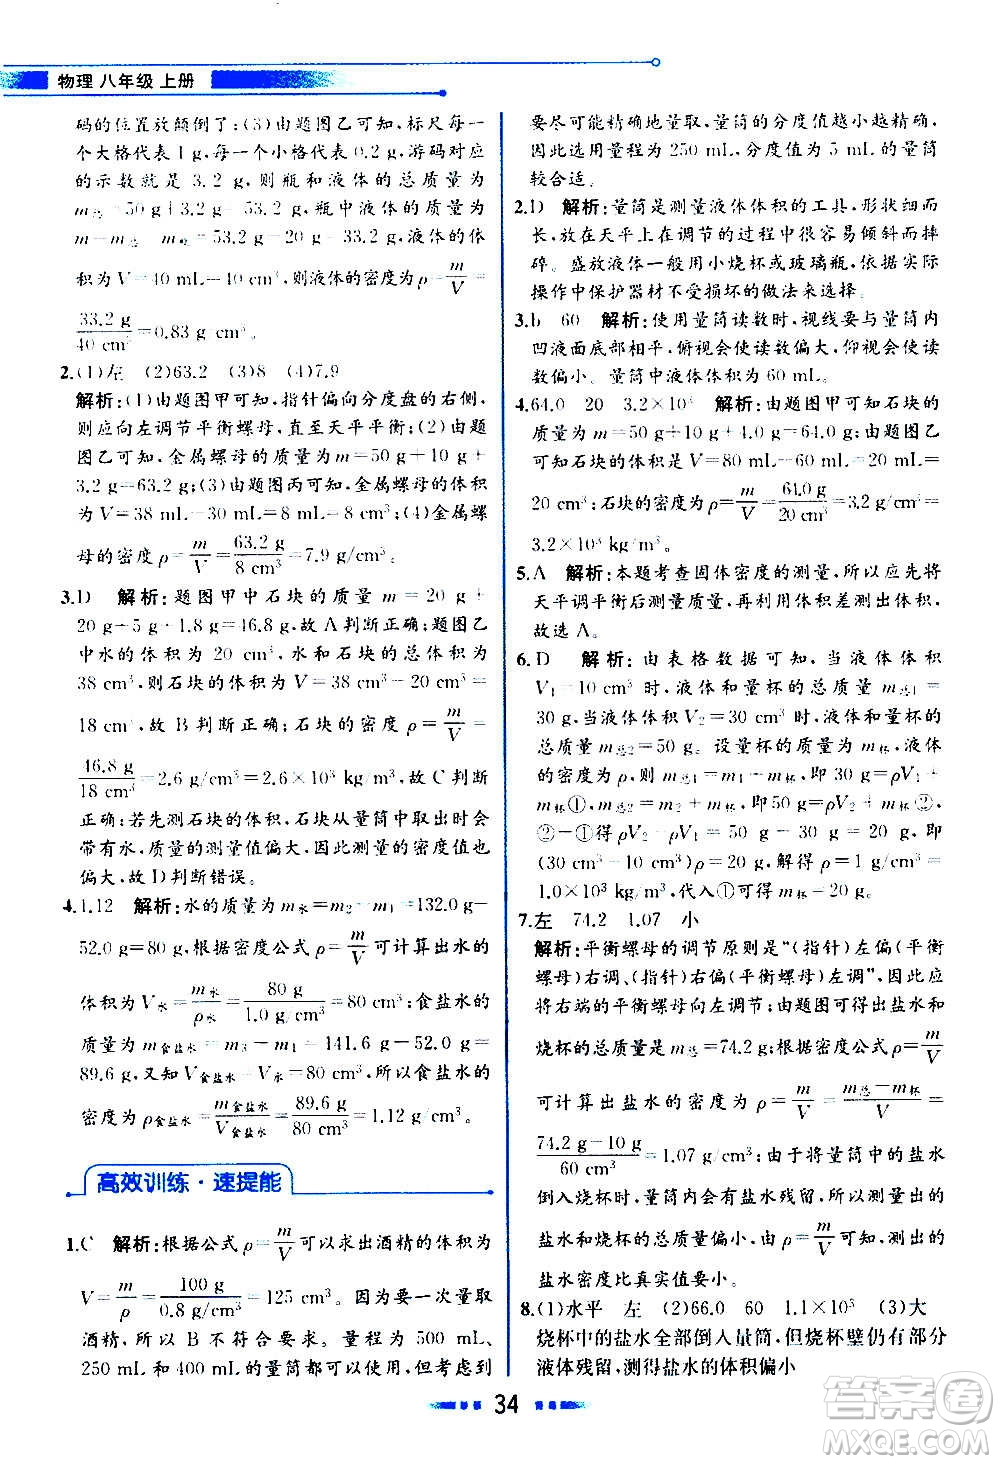 物理 八年级 上册
码的位置放颠倒了;(3)由题图乙可知,标尺每一
个大格代表 1 g,每一个小格代表 0.2 g,游码对应
的示数就是 3.2 g,则瓶和液体的总质量为
m总=50 g+3.2 g=53.2 g,瓶中液体的质量为
m=m总-m瓶=53.2 g-20 g=33.2 g,液体的体
积为 V=40 mL=40 cm³,则液体的密度 ρ=m/V=
33.2 g/40 cm³=0.83 g/cm³
2.(1)左 (2)63.2 (3)8 (4)7.9
解析:(1)由题图甲可知,指针偏向分度盘的右侧,
则应向左调节平衡螺母,直至天平平衡;(2)由题
图乙可知,金属螺母的质量为 m=50 g+10 g+
3.2 g=63.2 g;(3)由题图丙可知,金属螺母的体积
为 V=38 mL-30 mL=8 mL=8 cm³;(4)金属螺
母的密度 ρ=m/V=63.2 g/8 cm³=7.9 g/cm³。
3.D 解析:题图甲中石块的质量 m=20 g+
20 g+5 g+1.8 g=46.8 g,故 A 判断正确;题图乙
中水的体积为 20 cm³,水和石块的总体积为
38 cm³,则石块的体积 V=38 cm³-20 cm³=
18 cm³,故 B 判断正确;石块的密度 ρ=m/V=
46.8 g/18 cm³=2.6 g/cm³=2.6×10³ kg/m³,故 C 判断
正确;若先测石块的体积,石块从量筒中取出时会
带有水,质量的测量值偏大,故测量的密度值也
偏大,故 D 判断错误。
4.1.12 解析:水的质量为 m水=m2-m1=132.0 g-
52.0 g=80 g,根据密度公式 ρ=m/V 可计算出水的
体积为 V水=m水/ρ水=80 g/1.0 g/cm³=80 cm³;食盐水的
质量为 m食盐水=m3-m1=141.6 g-52.0 g=
89.6 g,又知 V食盐水=V水=80 cm³,所以食盐水的
密度为 ρ食盐水=m食盐水/V食盐水=89.6 g/80 cm³=1.12 g/cm³。
高效训练·速提能
1.C 解析:根据公式 ρ=m/V 可以求出酒精的体积为
V=m/ρ=100 g/0.8 g/cm³=125 cm³。因为要一次量取
酒精,所以 B 不符合要求。量程为 500 mL、
250 mL 和 400 mL 的量筒都可以使用,但考虑到
要尽可能精确地量取,量筒的分度值越小越精确,
因此选用量程为 250 mL,分度值为 5 mL 的量筒
较合适。
2.D 解析:量筒是测量液体体积的工具,形状细而
长,放在天平上在调节的过程中很容易倾斜而摔
碎。盛放液体一般用小烧杯或玻璃瓶,依据实际
操作中保护器材不受损坏的做法来选择。
3.b 60 解析:使用量筒读数时,视线要与量筒内
凹液面底部相平,俯视会使读数偏大,仰视会使读
数偏小。量筒中液体的体积为 60 mL。
4.64.0 20 3.2×10³ 解析:由题图甲可知石块的
质量为 m=50 g+10 g+4.0 g=64.0 g;由题图乙
可知石块的体积是 V=80 mL-60 mL=20 mL=
20 cm³;石块的密度为 ρ=m/V=64.0 g/20 cm³=3.2 g/cm³=
3.2×10³ kg/m³。
5.A 解析:本题考查固体密度的测量,所以应先将
天平调平衡后测量质量,再利用体积差测出体积,
故选 A。
6.D 解析:由表格数据可知,当液体体积
V1=10 cm³ 时,液体和量杯的总质量 m总1=
30 g,当液体体积 V2=30 cm³时,液体和量杯的
总质量 m总2=50 g。设量杯的质量为 m杯,液体
的密度为 ρ,则 m总1=m1+m杯,即 30 g=ρV1+
m杯①,m总2=m2+m杯,即 50 g=ρV2+m杯②,
②-①得 ρV2-ρV1=50 g-30 g=20 g,即
(30 cm³-10 cm³)ρ=20 g,解得 ρ=1 g/cm³=
1.0×10³ kg/m³,代入①可得 m杯=20 g。
7.左 74.2 1.07 小
解析:平衡螺母的调节原则是“(指针)左偏(平衡
螺母)右调、(指针)右偏(平衡螺母)左调”,因此应
将右端的平衡螺母向左调节;由题图可得出盐水和
烧杯的总质量是 m总=74.2 g,根据密度公式 ρ=m/V
可计算出盐水的密度 ρ=m/V=m总-m杯/V=
74.2 g-10 g/60 cm³=1.07 g/cm³;由于将量筒中的盐水
倒入烧杯时,量筒内会有盐水残留,所以测量出的
盐水和烧杯的总质量偏小,根据 ρ=m/V 可知,所测
盐水密度比真实值要小。
8.(1)水平 左 (2)66.0 60 1.1×10³ (3)大
烧杯中的盐水全部倒入量筒,但烧杯壁仍有部分
液体残留,测得盐水的体积偏小
34
答案圈
MXQE.COM